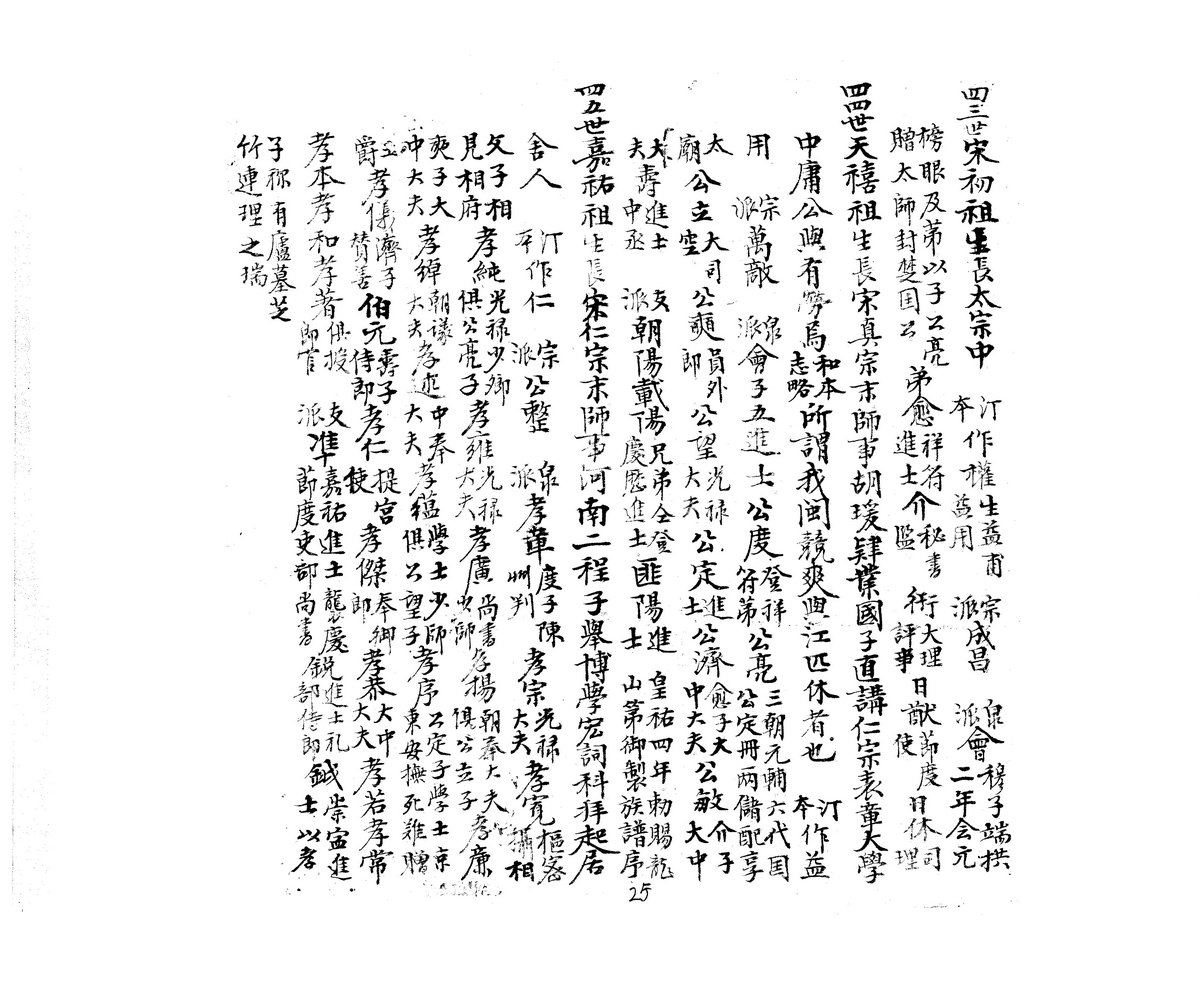 四三世宋初祖生長太宗中 汀本作權生益甫益用 宗派成昌 泉派會穆子端拱二年会元
榜眼及第以子公亮贈太師封楚国公 弟愈祥符進士 介秘書監 術大理評事 日猷節度使 日休司理
四四世天禧祖生長宋真宗末師事胡瑗肄業國子直講仁宗表章大學
中庸公與有勞焉和本志略所謂我閩競爽與江匹休者也 汀本作益
用 宗派萬敵 泉派會子五進士公度登祥符第公亮三朝元輔六代国公定冊兩儲配享
太廟公立大司空公奭員外郎公望光禄大夫公定進士公濟愈子大中大夫公敏介子大中
大夫壽進士中丞 支派朝陽載陽兄弟仝登慶歷進士匪陽進士 皇祐四年勅賜龍山第御製族譜序
四五世嘉祐祖生長宋仁宗末師事河南二程子舉博學宏詞科拜起居
舍人 汀本作仁 宗派公整 泉派孝章度子陳州判孝宗光禄大夫孝寬樞密攝相
父子相見相府孝純光禄少卿俱公亮子孝雍光禄大夫孝廣尚書少師孝揚朝奉大夫俱公立子孝廉
奭子大中大夫孝綽朝議大夫孝述中奉大夫孝蘊學士少師俱公望子孝序公定子學士京東安撫死難贈
五爵孝儀濟子贊善伯元壽子侍郎孝仁提宮使孝傑奉御郎孝恭大中大夫孝若孝常
孝本孝和孝著俱授郎官 支派準嘉祐進士龍慶節度吏部尚書銳進士礼部侍郎鉞崇寍進士以孝
子称有廬墓芝竹連理之瑞
25